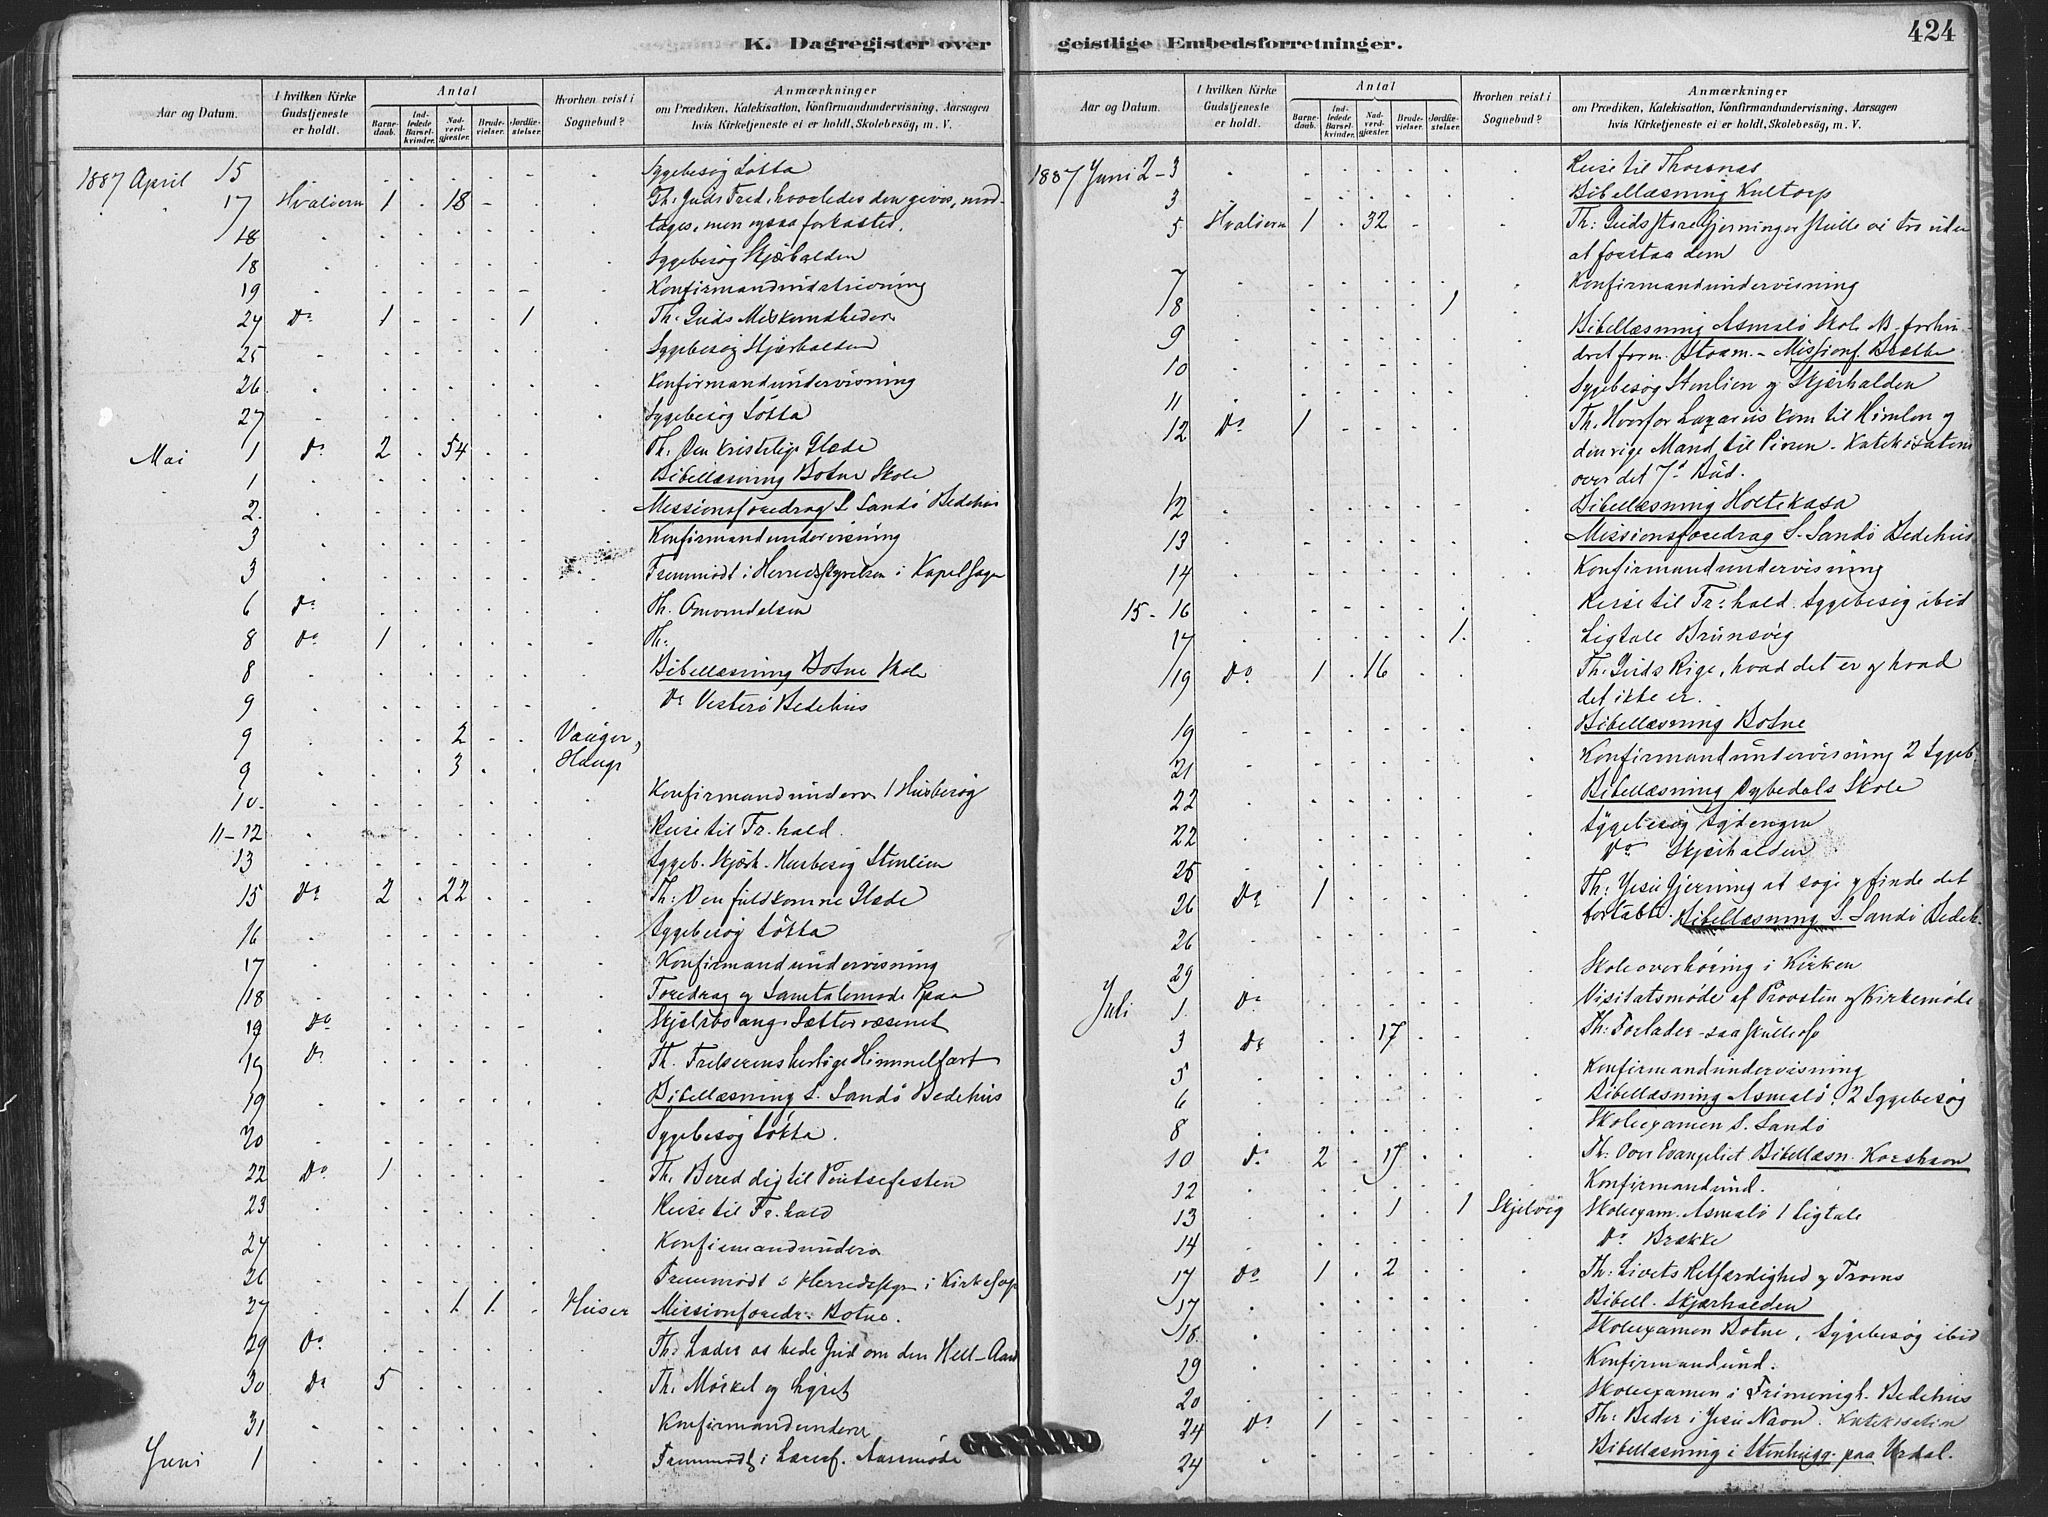 K. Dagregister over
Aar og Datum.
I hvilken Kirke Gudstjeneste er holdt.
Antal
Barnedaab.
Indledede Barselkvinder.
Nadverdgjæster.
Brudevielser.
Jordfæstelser.
Hvorhen reist i Sognebud?
Anmærkninger
om Prædiken, Katekisation, Konfirmandundervisning, Aarsagen
hvis Kirketjeneste ei er holdt, Skolebesøg, m. V.
1887 April 15 Sygebesøg Løkta
17 Hvaløern 1 18 Th: Guds Fred, hvorledes den gives, mod-
tages, men ogsaa forkastes.
18 Sygebesøg Skjærhalden
19 Konfirmandundervisning
24 Do 1 1 Th: Guds Miskundheder
25 Sygebesøg Skjærhalden
26 Konfirmandundervisning
27 Sygebesøg Løkta
Mai 1 Do 2 54 Th. Den kristelige Glæde
1 Bibellæsning Botne Skole
2 Missionsforedrag S. Sandø Bedehus
3 Konfirmandundervisning
3 Fremmødt i Herredsstyrelsen i Kapelsagen
6 Do Th. Omvendelsen
8 Do 1 Th:
8 Bibellæsning Botne Skole
9 Do Vesterø Bedehus
9 2 Vauger,
9 3 Hauge
10. Konfirmandunderv. 1 Husbesøg
11-12 Reise til Fr.hald.
13 Sygeb. Skjærh. Husbesøg Stenlien
15 Do 2 22 Th: Den fuldkomne Glæde
16 Sygebesøg Løkta
17 Konfirmandundervisning
18 Foredrag og Samtalemøde Spaa
19 Do Skjelsbo ang. Sættervæsenet
19 Do Th. Frelserens herlige Himmelfart
19 Bibellæsning S. Sandø Bedehus
20 Sygebesøg Løkta.
22 Do 1 Th. Bered dig til Pintsefesten
23 Reise til Fr.hald
24 Konfirmandunderv
26 Fremmødt i Herredsstyr i Kirkesag
27 1 1. Huser Missionsforedr. Botne.
29 Do Th: Lader os bede Gud om den Hell-Aand
30 Do 5 Th. Mørket og Lyset
31 Konfirmandunderv
Juni 1 Fremmødt i Lærerf. Aarsmøde
geistlige Embedsforretninger.
424
Aar og Datum.
I hvilken Kirke Gudstjeneste er holdt.
Antal
Barnedaab.
Indledede Barselkvinder.
Nadverdgjæster.
Brudevielser.
Jordfæstelser.
Hvorhen reist i Sognebud?
Anmærkninger
om Prædiken, Katekisation, Konfirmandundervisning, Aarsagen
hvis Kirketjeneste ei er holdt, Skolebesøg, m. V.
1887 Juni 2-3 Reise til Thorsnæs
3 Bibellæsning Kultorp
5 Hvaløern 1 32 Th: Guds store Gjerninger skulle vi tro uden
at forstaa dem
7 Konfirmandundervisning
8 1
9 Bibellæsning Asmalø Skole NB. forhin-
dret form. Storm. - Missionsf. Brække
10
11 Sygebesøg Stenlien og Skjærhalden
12 Do 1 Th. Hvorfor Lazarus kom til Himlen og
den rige Mand til Pinen. Katekisation
over det 7de Bud.
12 Bibellæsning Holtekasa
13 Missionsforedrag S. Sandø Bedehus
14 Konfirmandundervisning
15-16 Reise til Fr:hald. Sygebesøg ibid
17 1. Ligtale Brunsvig
19 Do 1 16 Th: Guds Rige, hvad det er og hvad
det ikke er.
19 Bibellæsning Botne
21 Konfirmandundervisning 2 Sygeb.
22 Bibellæsning Dybedals Skole
22 Sygebesøg Sydengen
25 Do Skjærhalden
26 Do 1 Th: Jesu Gjerning at søge og finde det
fortabte. Bibellæsning S. Sandø Bedeh.
26
29 Skoleoverhøring i Kirken
Juli 1. Do Visitatsmøde af Provsten og Kirkemøde
3 Do 17 Th: Forlader-saa skulle osv
5 Konfirmandundervisning
6 Bibellæsning Asmalø. 2 Sygebesøg
8 Skoleexamen S. Sandø
10 Do 2 17 Th: Over Evangeliet Bibellæsn. Korshavn
12 Konfirmandund.
13 1 1 Skjelvig Skoleexam. Asmalø 1 Ligtale
14 Do Brække
17 Do 1 2 Th: Livets Retfærdighed og Troens
17 Bibell. Skjærhalden
18. Skoleexamen Botne, Sygebesøg ibid
19 Konfirmandund.
20 Skoleexamen i Frimenigh. Bedehus
24 Do 1 Th: Beder i Jesu Navn. Katekisation
24 Bibellæsning i Stenhugg. paa Urdal.